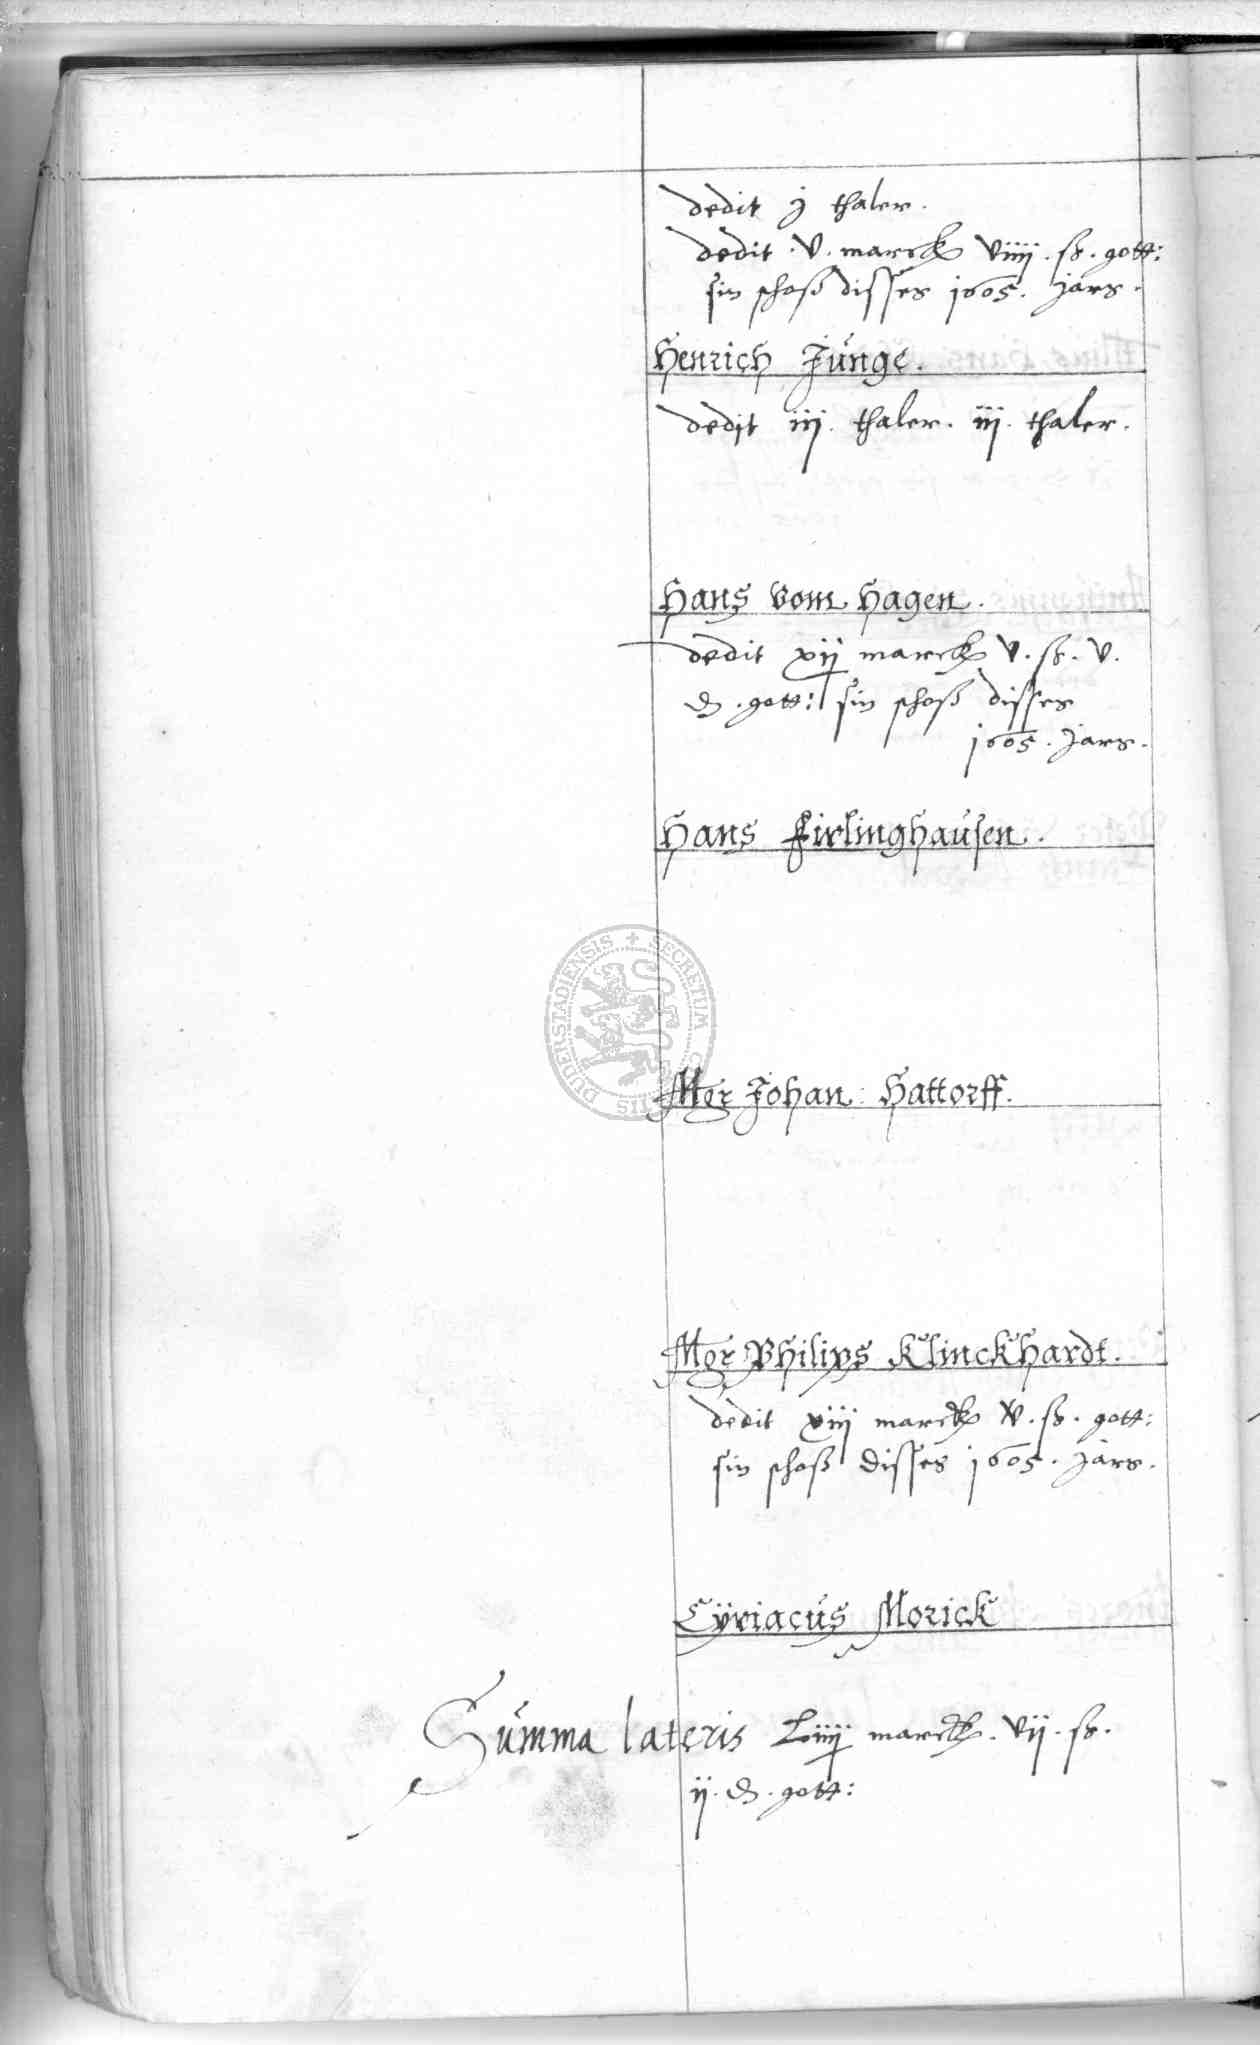 dedit j thaler.
dedit . v . marck viiii . ß . gott:
sin schoß disses 1605 . Jars .
Henrich Junge .
dedit iij . thaler . iij . thaler .
Hans vom Hagen .
dedit xij marck v . ß . v .
₰ . gott: sin schoß disses
1605 . Jars .
Hans Firlinghausen .
DUDERSTADIENSIS + SECRETUM
Mer Johan : Hattorff .
Mer Philips Klinckhardt .
dedit xiij marck v . ß . gott:
sin schoß disses 1605 . Jars .
Cÿriacus Morick
Summa lateris Liiij marck . vij . ß .
ij . ₰ . gott: